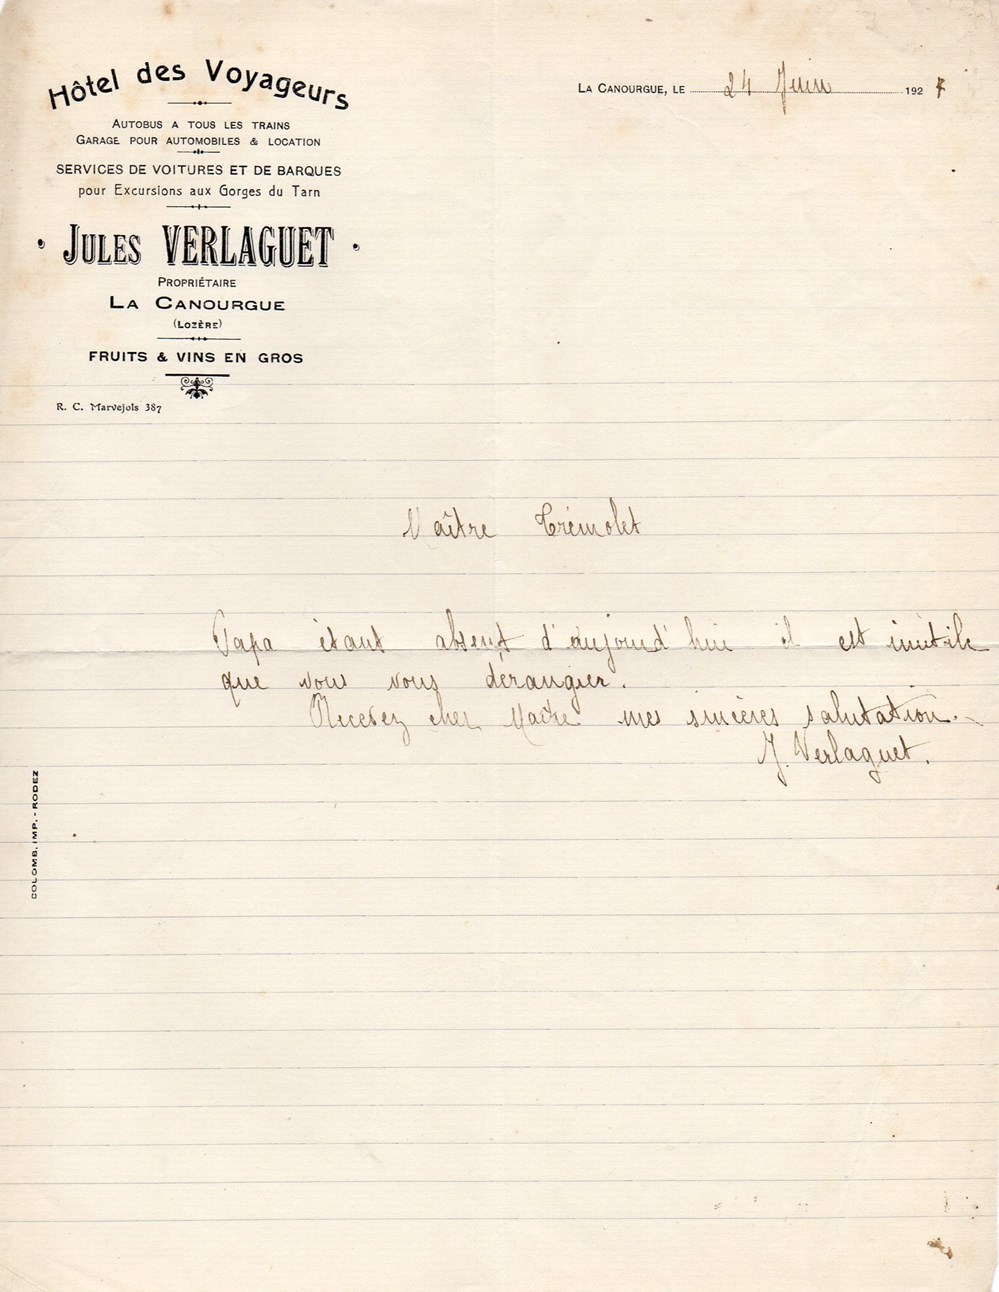 Hôtel des Voyageurs
AUTOBUS A TOUS LES TRAINS
GARAGE POUR AUTOMOBILES & LOCATION
SERVICES DE VOITURES ET DE BARQUES
pour Excursions aux Gorges du Tarn
JULES VERLAGUET
PROPRIÉTAIRE
LA CANOURGUE
(LOZÈRE)
FRUITS & VINS EN GROS
R. C. Marvejols 387
LA CANOURGUE, LE 24 Juin 1927
Maître Trémolet
Papa étant absent d'aujourd'hui il est inutile
que vous vous dérangier.
Recevez cher Maître mes sincères salutation.
J. Verlaguet.
COLOMB. IMP. - RODEZ